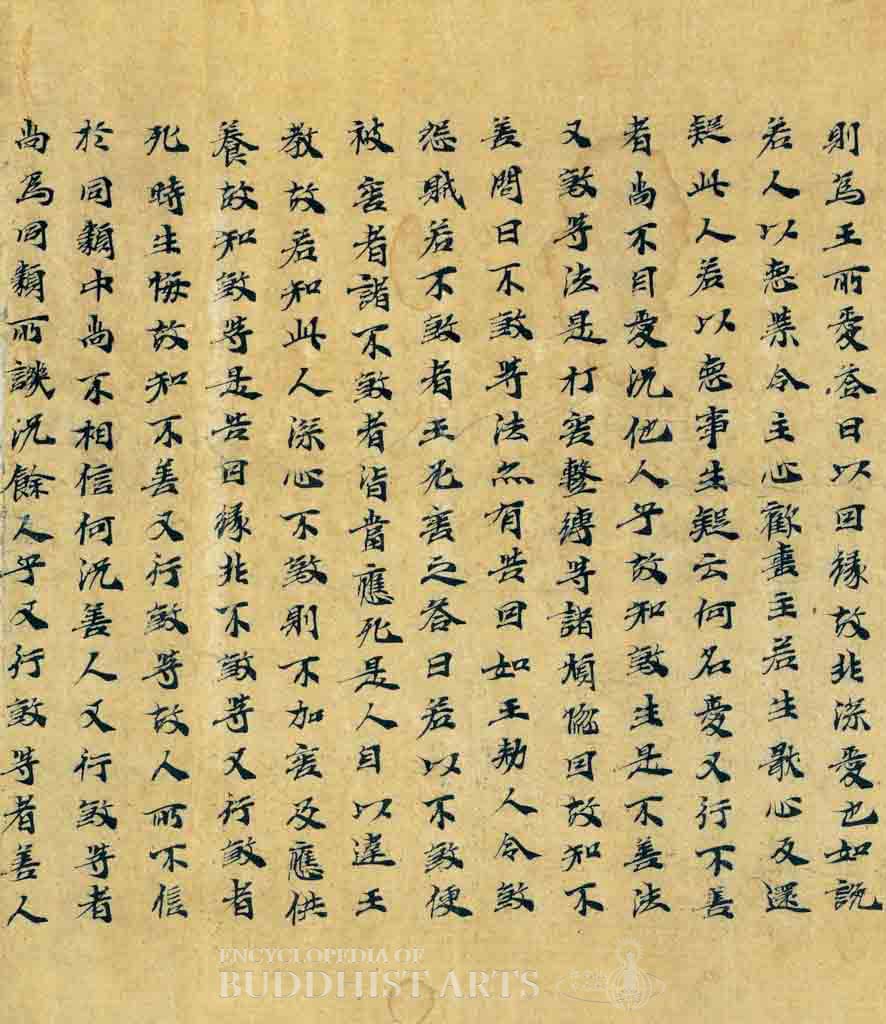 則為王所愛荅曰以因緣故非深愛也如說
若人以惡業令主心歡喜主若生猒心反還
疑此人若以惡事生疑云何名愛又行不善
者尚不自愛況他人乎故知殺生是不善法
又殺等法是打害繫縛等諸煩惱因故知不
善問曰不殺等法亦有苦因如王勑人令殺
怨賊若不殺者王害之荅曰若以不殺便
被害者諸不殺者皆當應死是人自以違王
教故若知此人深心不殺則不加害反應供
養故知殺等是苦因緣非不殺等又行殺者
死時生悔故知不善又行殺等故人所不信
於同類中尚不相信何況善人又行殺等者
尚為同類所譏況餘人乎又行殺等者善人
ENCYCLOPEDIA OF
BUDDHIST ARTS